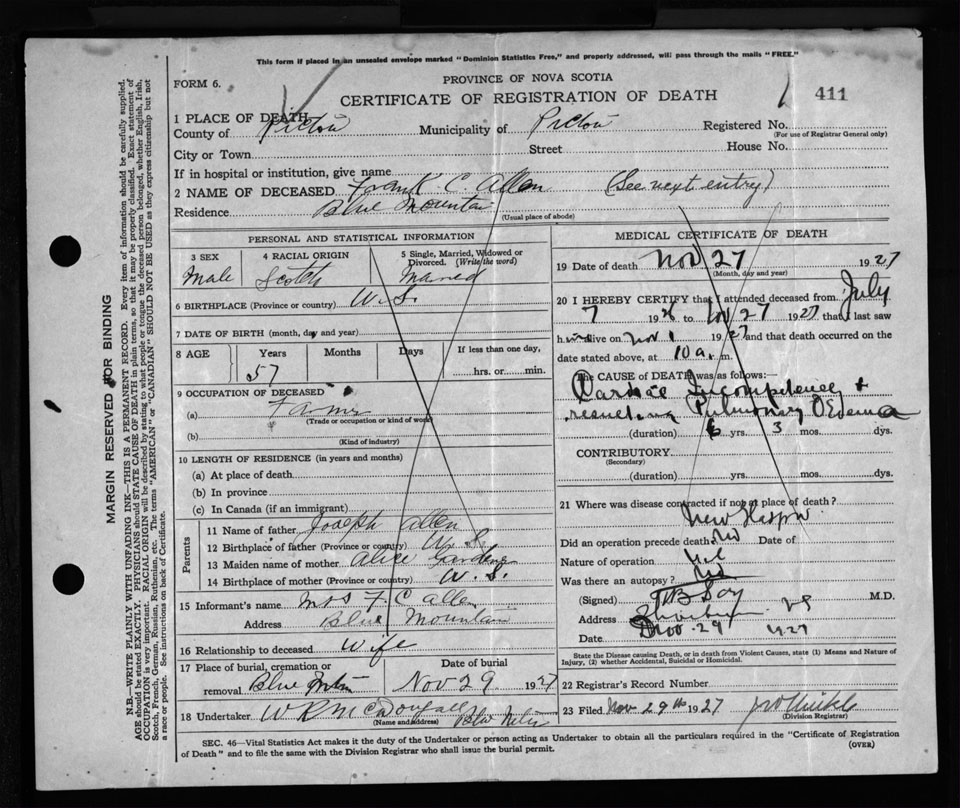 This form if placed in an unsealed envelope marked "Dominion Statistics Free," and properly addressed, will pass through the mails "FREE."
FORM 6.
PROVINCE OF NOVA SCOTIA
CERTIFICATE OF REGISTRATION OF DEATH
411
1 PLACE OF DEATH
County of Pictou Municipality of Pictou Registered No.
(For use of Registrar General only)
City or Town Street House No.
If in hospital or institution, give name
2 NAME OF DECEASED Frank C. Allen (See next entry)
Residence Blue Mountain
(Usual place of abode)
PERSONAL AND STATISTICAL INFORMATION
3 SEX 4 RACIAL ORIGIN 5 Single, Married, Widowed or Divorced. (Write the word)
Male Scotch Married
6 BIRTHPLACE (Province or country) N.S.
7 DATE OF BIRTH (month, day and year)
8 AGE Years Months Days If less than one day,
57 hrs. or min.
9 OCCUPATION OF DECEASED
(a) Farmer
(Trade or occupation or kind of work)
(b)
(Kind of industry)
10 LENGTH OF RESIDENCE (in years and months)
(a) At place of death
(b) In province
(c) In Canada (if an immigrant)
Parents
11 Name of father Joseph Allen
12 Birthplace of father (Province or country) N.S.
13 Maiden name of mother Alice
14 Birthplace of mother (Province or country) N.S.
15 Informant's name Mrs F. C Allen
Address Blue Mountain
16 Relationship to deceased Wife
17 Place of burial, cremation or removal Blue Mtn Date of burial Nov 29 1927
18 Undertaker W R McDougall Blue Mtn
(Name and address)
MEDICAL CERTIFICATE OF DEATH
19 Date of death Nov 27 1927
(Month, day and year)
20 I HEREBY CERTIFY that I attended deceased from July
7 1926 to Nov 27 1927 that I last saw
him alive on Nov 1 1927 and that death occurred on the
date stated above, at 10 a. m.
The CAUSE OF DEATH was as follows:—
Cardiac Incompetence +
resulting Pulmonary OEdema
(duration) yrs. 3 mos. dys.
CONTRIBUTORY
(Secondary)
(duration) yrs. mos. dys.
21 Where was disease contracted if not at place of death?
New
Did an operation precede death No Date of
Nature of operation Nil
Was there an autopsy? No
(Signed) M.D.
Address NS
Date Nov 29 1927
State the Disease causing Death, or in death from Violent Causes, state (1) Means and Nature of Injury, (2) whether Accidental, Suicidal or Homicidal.
22 Registrar's Record Number
23 Filed Nov 29th 1927
(Division Registrar)
SEC. 46—Vital Statistics Act makes it the duty of the Undertaker or person acting as Undertaker to obtain all the particulars required in the "Certificate of Registration
of Death" and to file the same with the Division Registrar who shall issue the burial permit. (OVER)
MARGIN RESERVED FOR BINDING
N.B.—WRITE PLAINLY WITH UNFADING INK—THIS IS A PERMANENT RECORD. Every item of information should be carefully supplied.
AGE should be stated EXACTLY. PHYSICIANS should STATE CAUSE OF DEATH in plain terms, so that it may be properly classified. Exact statement of
OCCUPATION is very important. RACIAL ORIGIN will be described by stating to what people or tongue the deceased person belonged, whether English, Irish,
Scotch, French, German, Russian, Ruthenian, etc. The terms "AMERICAN" or "CANADIAN" SHOULD NOT BE USED as they express citizenship but not
a race or people. See instructions on back of Certificate.